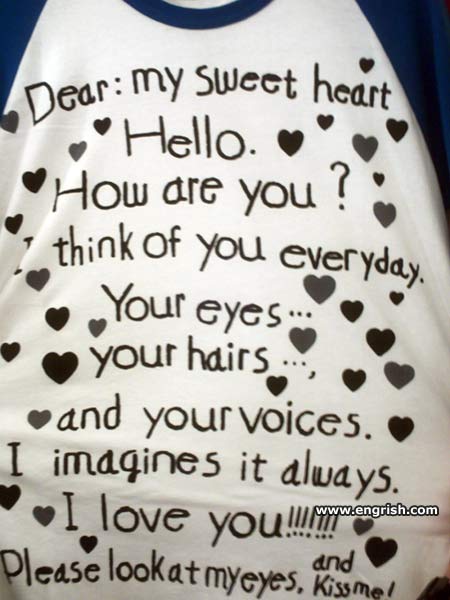 Dear: my sweet heart
Hello.
How are you?
I think of you everyday.
Your eyes...
your hairs ...,
and your voices.
I imagines it always.
www.engrish.com
I love you!!!!!!!
Please look at my eyes, and Kiss me!